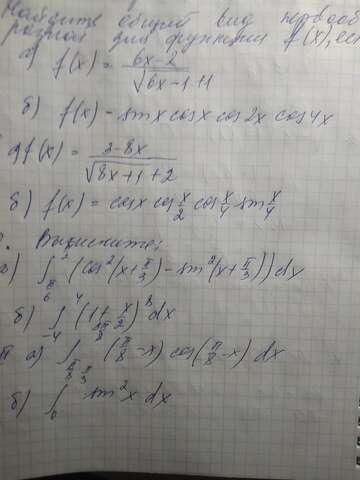 Найдите общий вид первооб
разной для функции f(x), ес
а) f(x) = 6x-2 / √6x-1+1
б) f(x) - sinx cosx cos2x cos4x
f(x) = 2-8x / √8x+1+2
б) f(x) = cosx cos x/2 cos x/4 sin x/4
Вычислите:
∫ (cos²(x+π/3) - sin²(x+π/3)) dx
б) ∫ -4 4 (1+x/2)³ dx
а) ∫ (π/8-x) cos(π/8-x) dx
б) ∫ 0 π/3 sin²x dx